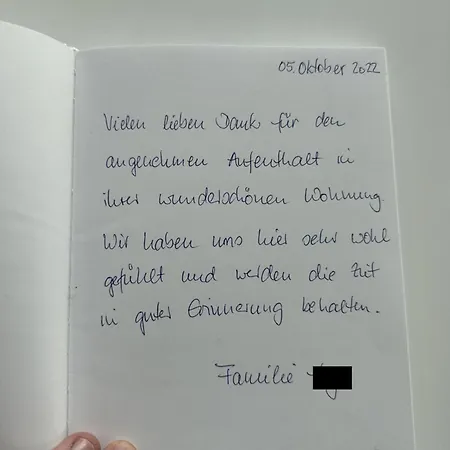 05. Oktober 2022
Vielen lieben Dank für den
angenehmen Aufenthalt in
ihrer wunderschönen Wohnung.
Wir haben uns hier sehr wohl
gefühlt und werden die Zeit
in guter Erinnerung behalten.
Familie